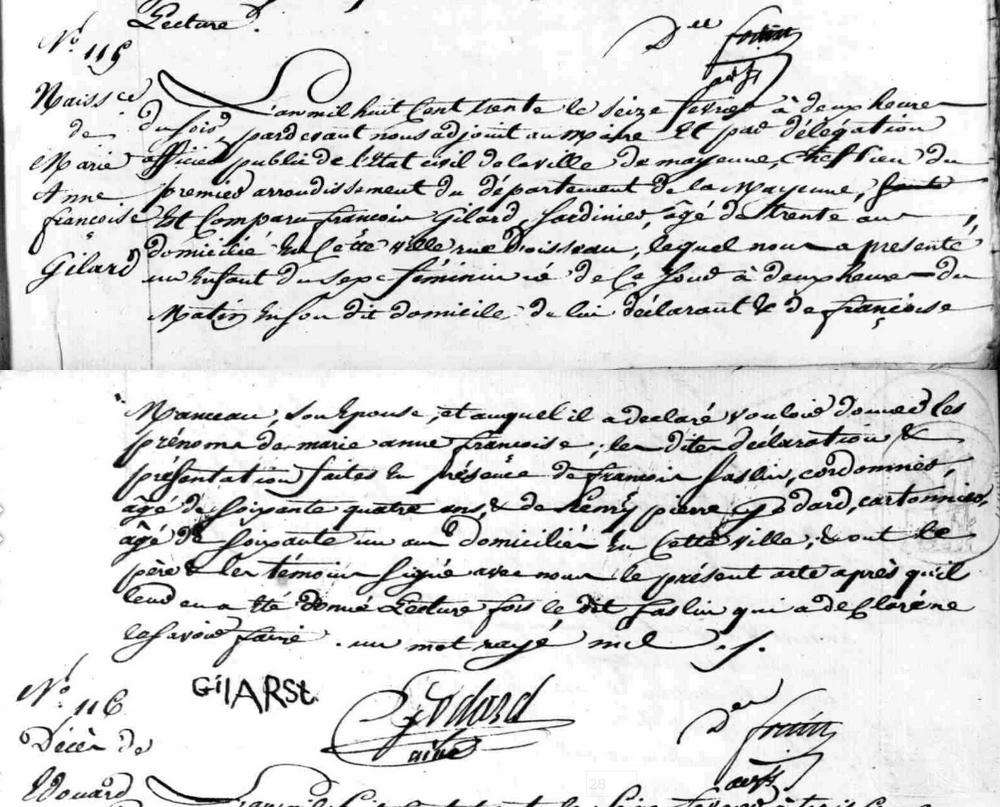 Lecture.
N.º 115
Naissce
de
Marie
Anne
françoise
Gilard
L'an mil huit Cent trente le seize fevrier à deux heures
du soir pardevant nous adjoint au maire Et par délégation
officier public de l'Etat civil de la ville de mayenne, Chef lieu du
premier arrondissement du département de la Mayenne,
Est Comparu françois Gilard, Jardinier, âgé de trente ans,
domicilié En Cette ville rue d'oisseau, lequel nous a présenté
un Enfant du sexe féminin né de Ce Jour à deux heures du
Matin En son dit domicile de lui déclarant & de françoise
Manceau, son Epouse, et auquel il a déclaré vouloir donner les
prénoms de marie anne françoise; les dites déclaration &
présentation faites En présence de françois Gaslin, cordonnier,
âgé de soixante quatre ans, & de Remy pierre Godard, cartonnier,
âgé de soixante un ans domiciliés En Cette ville; & ont le
père & les témoins signé avec nous le présent acte après qu'il
leur en a été donné Lecture fors le dit Gaslin qui a déclaré ne
le savoir faire. un mot rayé nul ./.
GilARSt.
Godard
ainé
N.º 116
Décès de
Edouard